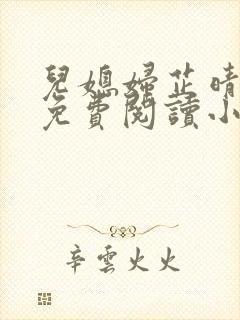 兒媳婦芷晴
免費閱讀小
辛雲火火